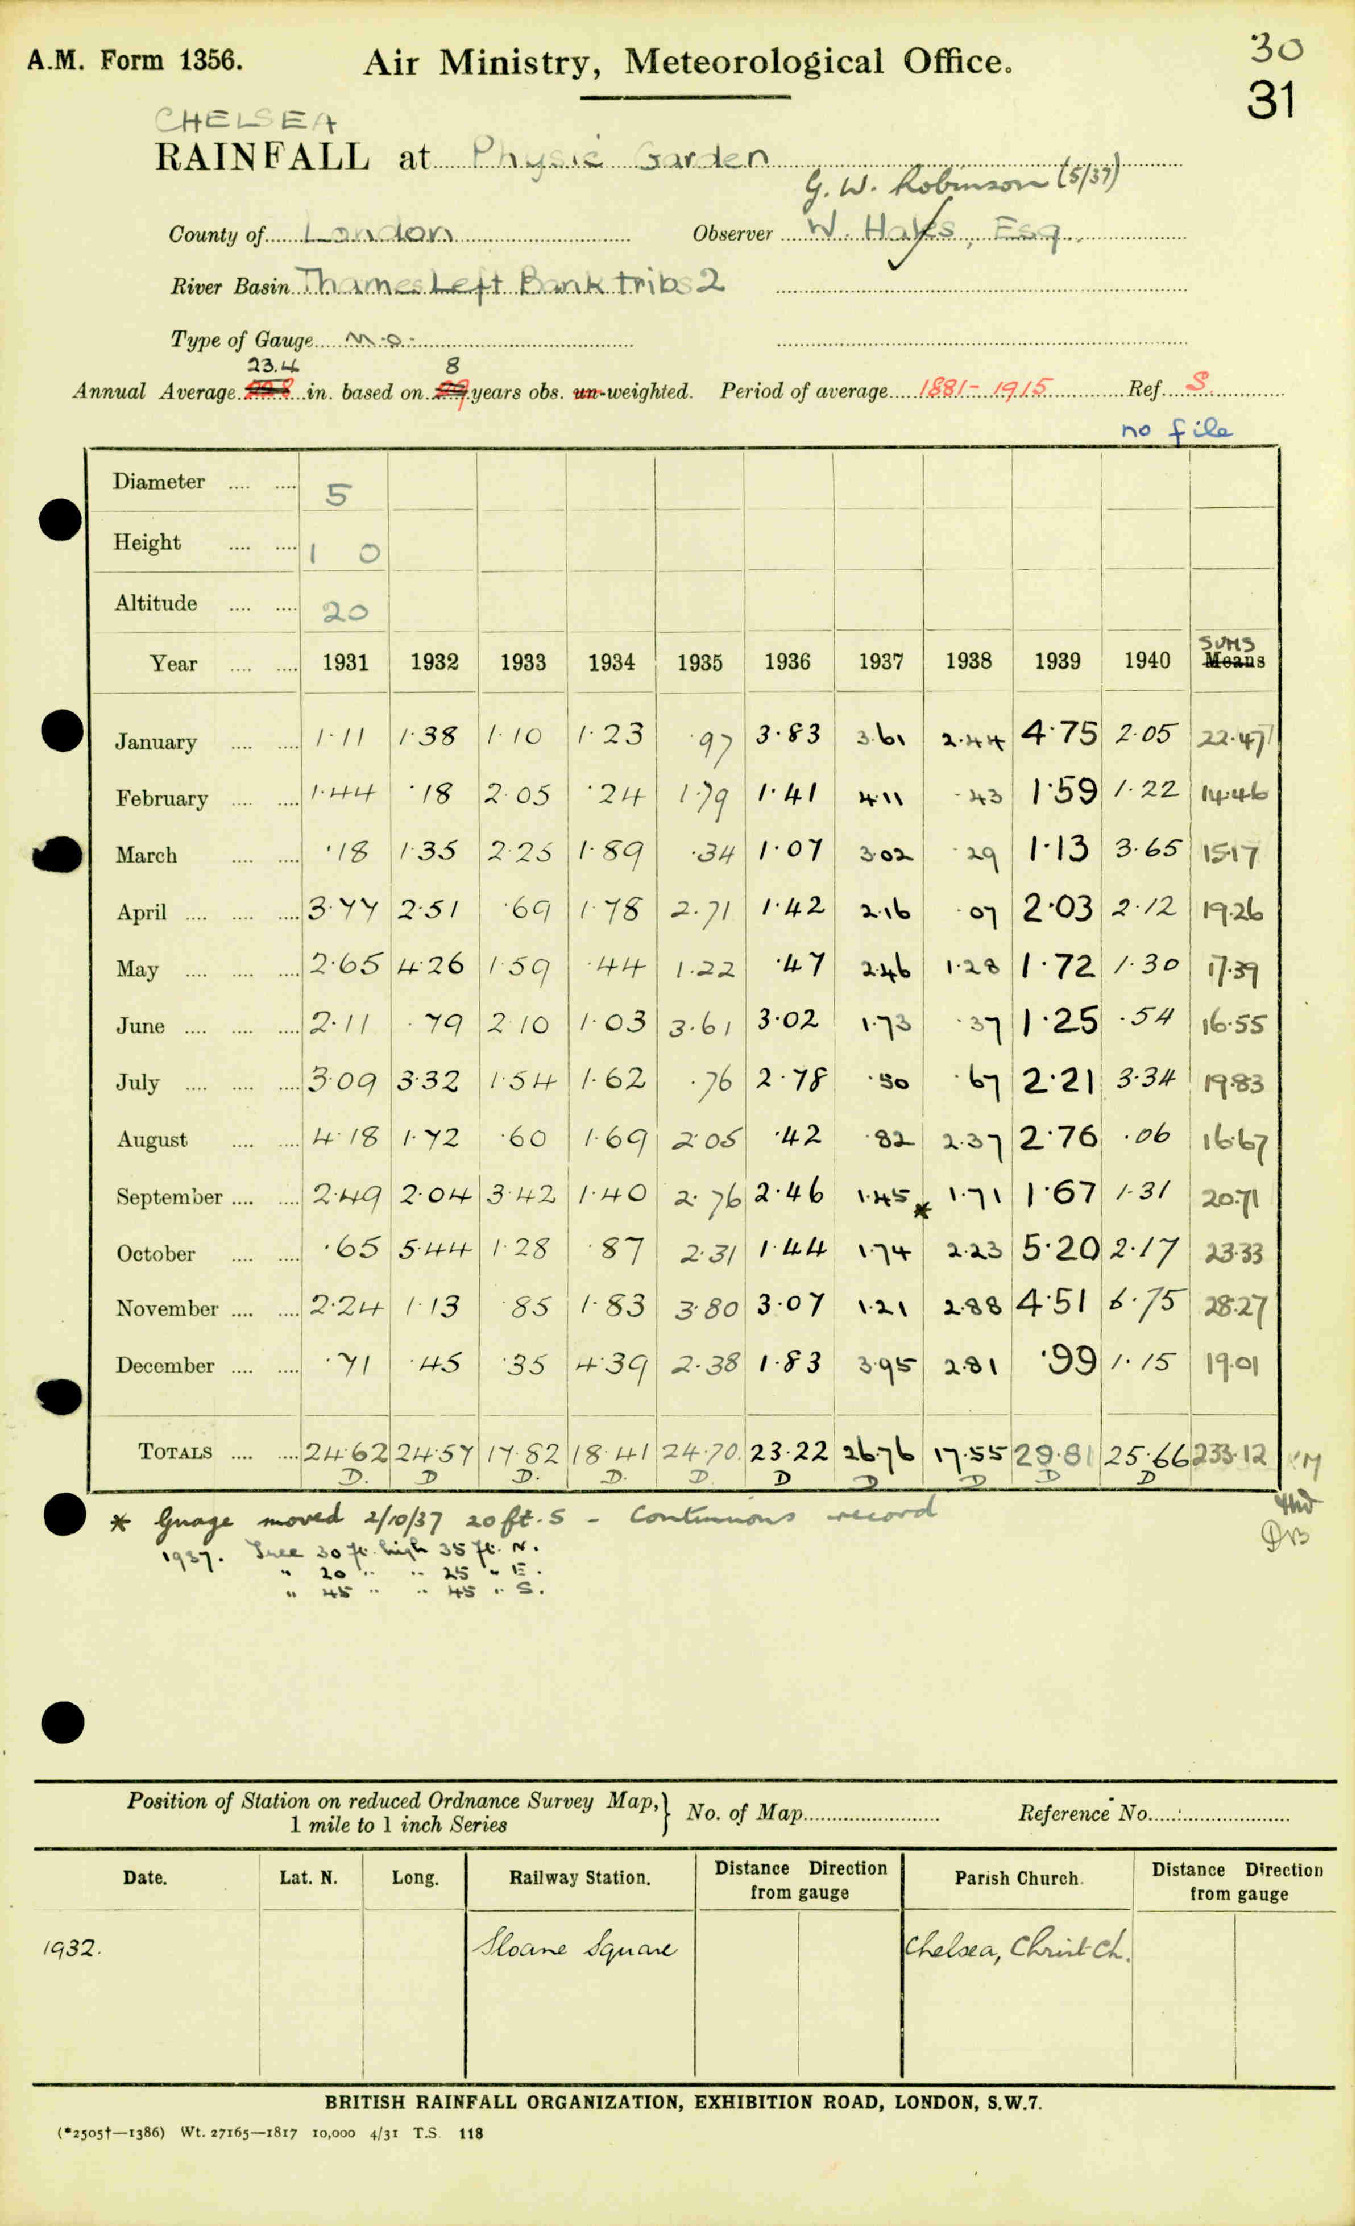 A.M. Form 1356. Air Ministry, Meteorological Office. 30
31
CHELSEA
RAINFALL at Physic Garden
G. W. Robinson (5/37)
County of London Observer W. Hales, Esq.
River Basin Thames Left Bank tribs 2
Type of Gauge M.O.
23.4 8
Annual Average in. based on 29 years obs. un-weighted. Period of average 1881-1915 Ref. S.
no file
Diameter .... .... 5
Height .... .... 1 0
Altitude .... .... 20
SUMS
Year .... .... 1931 1932 1933 1934 1935 1936 1937 1938 1939 1940 Means
January .... .... 1.11 1.38 1.10 1.23 .97 3.83 3.61 2.44 4.75 2.05 22.47
February .... .... 1.44 .18 2.05 .24 1.79 1.41 4.11 .43 1.59 1.22 14.46
March .... .... .18 1.35 2.25 1.89 .34 1.07 3.02 .29 1.13 3.65 15.17
April .... .... .... 3.77 2.51 .69 1.78 2.71 1.42 2.16 .07 2.03 2.12 19.26
May .... .... .... 2.65 4.26 1.59 .44 1.22 .47 2.46 1.28 1.72 1.30 17.39
June .... .... .... 2.11 .79 2.10 1.03 3.61 3.02 1.73 .37 1.25 .54 16.55
July .... .... .... 3.09 3.32 1.54 1.62 .76 2.78 .50 .67 2.21 3.34 19.83
August .... .... 4.18 1.72 .60 1.69 2.05 .42 .82 2.37 2.76 .06 16.67
September .... .... 2.49 2.04 3.42 1.40 2.76 2.46 1.45 * 1.71 1.67 1.31 20.71
October .... .... .65 5.44 1.28 .87 2.31 1.44 1.74 2.23 5.20 2.17 23.33
November .... .... 2.24 1.13 .85 1.83 3.80 3.07 1.21 2.88 4.51 6.75 28.27
December .... .... .71 .45 .35 4.39 2.38 1.83 3.95 2.81 .99 1.15 19.01
TOTALS .... .... 24.62 24.57 17.82 18.41 24.70 23.22 26.76 17.55 29.81 25.66 233.12
D. D D. D. D. D D D D D
* Guage moved 2/10/37 20 ft. S - Continuous record
DB
1937. Tree 30 ft. high 35 ft. N.
" 20 " " 25 " E.
" 45 " " 45 " S.
Position of Station on reduced Ordnance Survey Map,
1 mile to 1 inch Series } No. of Map Reference No.
Date. Lat. N. Long. Railway Station. Distance Direction from gauge Parish Church. Distance Direction from gauge
1932. Sloane Square Chelsea, Christ Ch.
BRITISH RAINFALL ORGANIZATION, EXHIBITION ROAD, LONDON, S.W.7.
(*2505†—1386) Wt. 27165—1817 10,000 4/31 T.S. 118